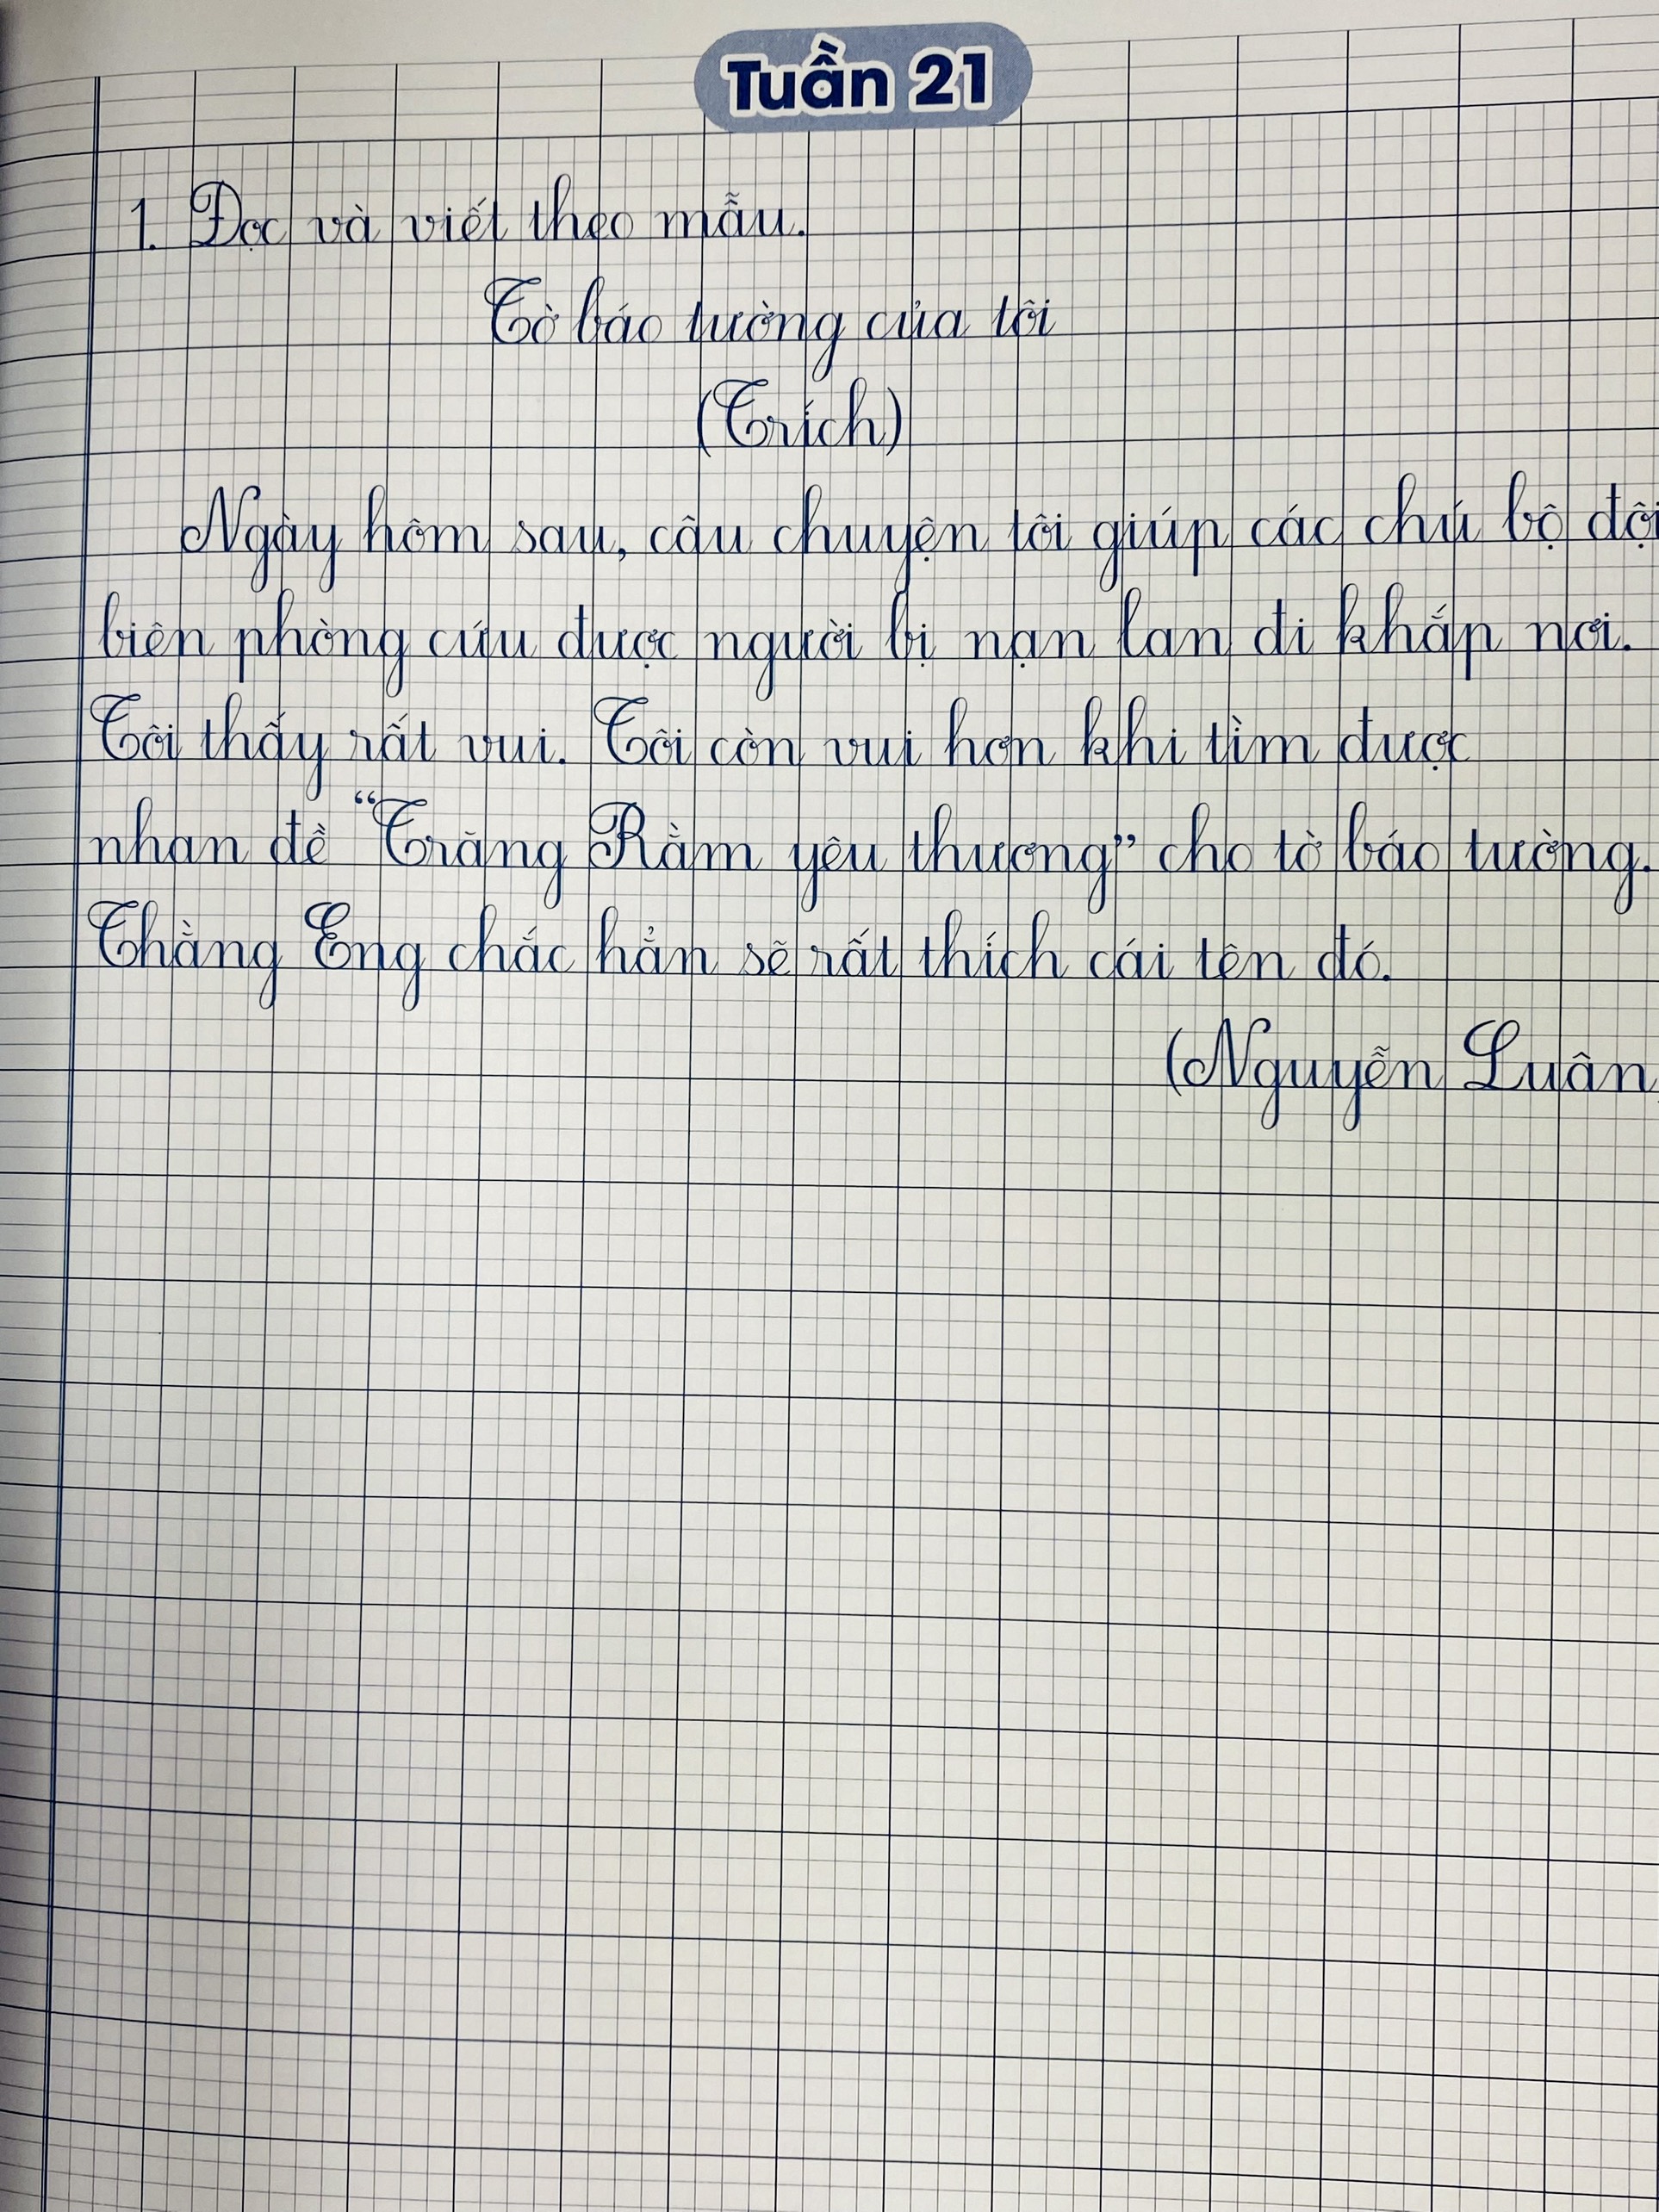 Tuần 21
1. Đọc và viết theo mẫu.
Tờ báo tường của tôi
(Trích)
Ngày hôm sau, câu chuyện tôi giúp các chú bộ đội
biên phòng cứu được người bị nạn lan đi khắp nơi.
Tôi thấy rất vui. Tôi còn vui hơn khi tìm được
nhan đề “Trăng Rằm yêu thương” cho tờ báo tường.
Thằng Eng chắc hẳn sẽ rất thích cái tên đó.
(Nguyễn Luân